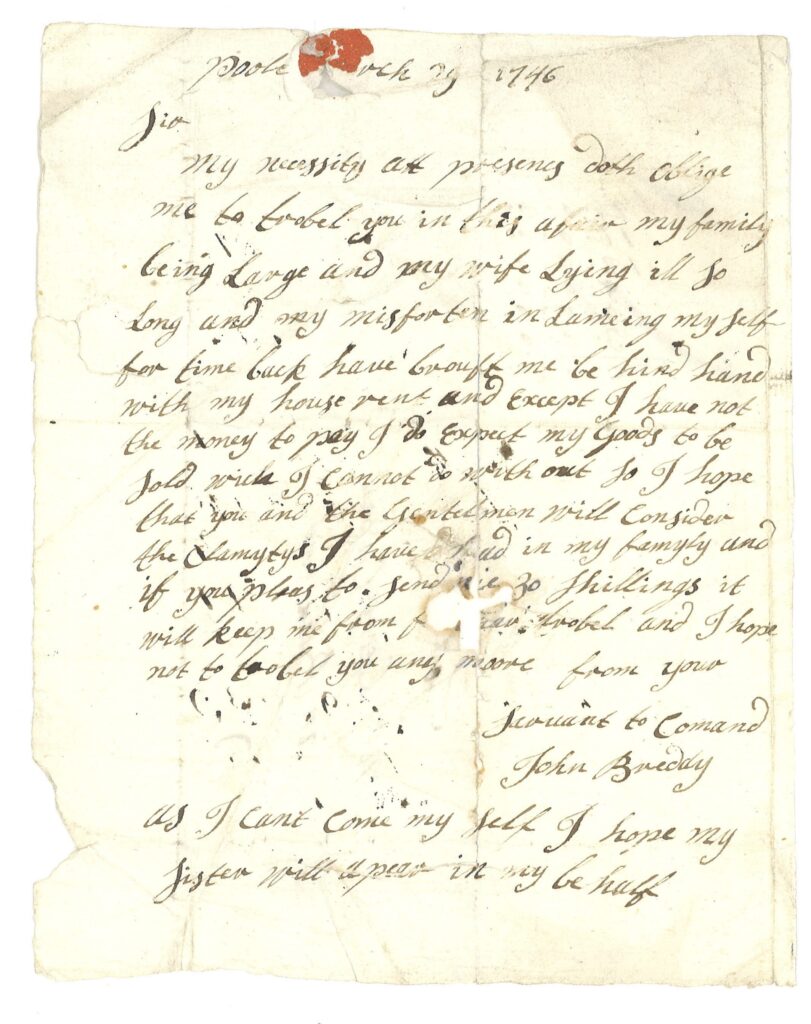 Poole rch 29 1746
Sir
My necessity att presenes doth oblige
me to trobel you in this afair my family
being Large and my wife Lying ill so
Long and my misforten in Lameing my self
for time back have brouft me be hind hand
with my house rent and Except I have not
the money to pay I do Expect my Goods to be
sold wich I cannot do with out so I hope
that you and the Gentelmen will Consider
the Clamytys I have had in my famyly and
if you pleas to send me 30 shillings it
will keep me from trobel and I hope
not to trobel you any moore from your
servant to Comand
John Breddy
as I cant come my self I hope my
sister will apear in my be half